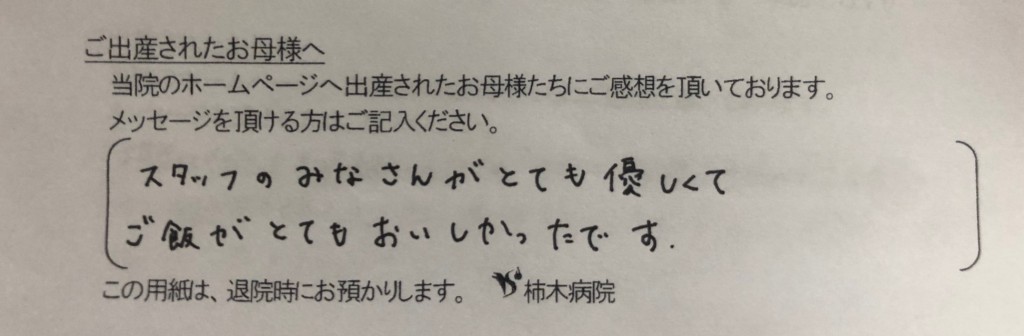 ご出産されたお母様へ
当院のホームページへ出産されたお母様たちにご感想を頂いております。
メッセージを頂ける方はご記入ください。
スタッフのみなさんがとても優しくて
ご飯がとてもおいしかったです.
この用紙は、退院時にお預かりします。 柿木病院